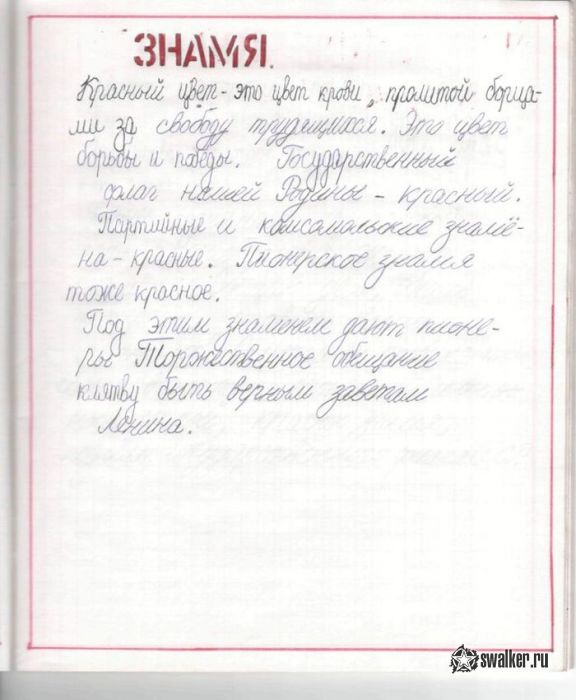 ЗНАМЯ.
Красный цвет - это цвет крови, пролитой борца-
ми за свободу трудящихся. Это цвет
борьбы и победы. Государственный
флаг нашей Родины - красный.
Партийные и комсомольские знамё-
на - красные. Пионерское знамя
тоже красное.
Под этим знаменем дают пионе-
ры Торжественное обещание
клятву быть верным заветам
Ленина.
swalker.ru